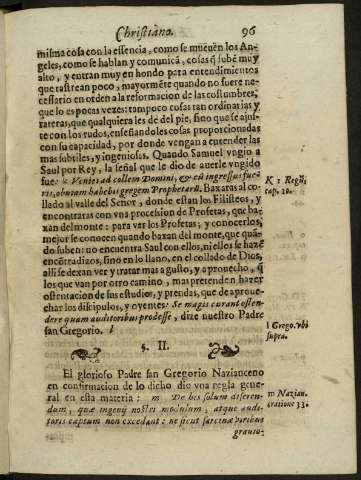 Christiano. 96
misma cosa con la essencia, como se mueuen los An-
geles, como se hablan y comunicã, cosas q̃ subẽ muy
alto, y entran muy en hondo para entendimientos
que rastrean poco, mayormẽte quando no fuere ne-
cessario en orden a la reformacion de las costumbres,
que lo es pocas vezes: tampoco cosas tan ordinarias y
rateras, que qualquiera les dè del pie, sino que se ajus-
te con los rudos, enseñandoles cosas proporcionadas
con su capacidad, por donde vengan a entender las
mas subtiles, y ingeniosas. Quando Samuel vngio a
Saul por Rey, la señal que le dio de auerle vngido
fue: k Venies ad collem Domini, & cũ ingressus fue-
ris, obuiam habebis gregem Prophetarũ. Baxaras al co-
llado al valle del Señor, donde estan los Filisteos, y
encontraras con vna procession de Profetas, que ba-
xan del monte: para ver los Profetas, y conocerlos,
mejor se conocen quando baxan del monte, que quã-
do suben: no encuentra Saul con ellos, ni ellos se hazẽ
encõtradizos, sino en lo llano, en el collado de Dios,
alli se dexan ver y tratar mas a gusto, y aprouecho, q̃
los que van por otro camino, mas pretenden hazer
ostentacion de sus estudios, y prendas, que de aproue-
char los discipulos, y oyentes: Se magis curant osten-
dere quam auditoribus prodesse, dize nuestro Padre
san Gregorio. l
K 1 Regũ,
cap. 10.
l Grego. vbi
supra.
§. II.
El glorioso Padre san Gregorio Nazianceno
en confirmacion de lo dicho dio vna regla gene-
ral en esta materia: m De his solum disseren-
dum, quæ ingenij nostri modulum, atque audi-
toris captum non excedant: ne sicut sarcinæ viribus
m Nazian.
oratione 33.
grauio-